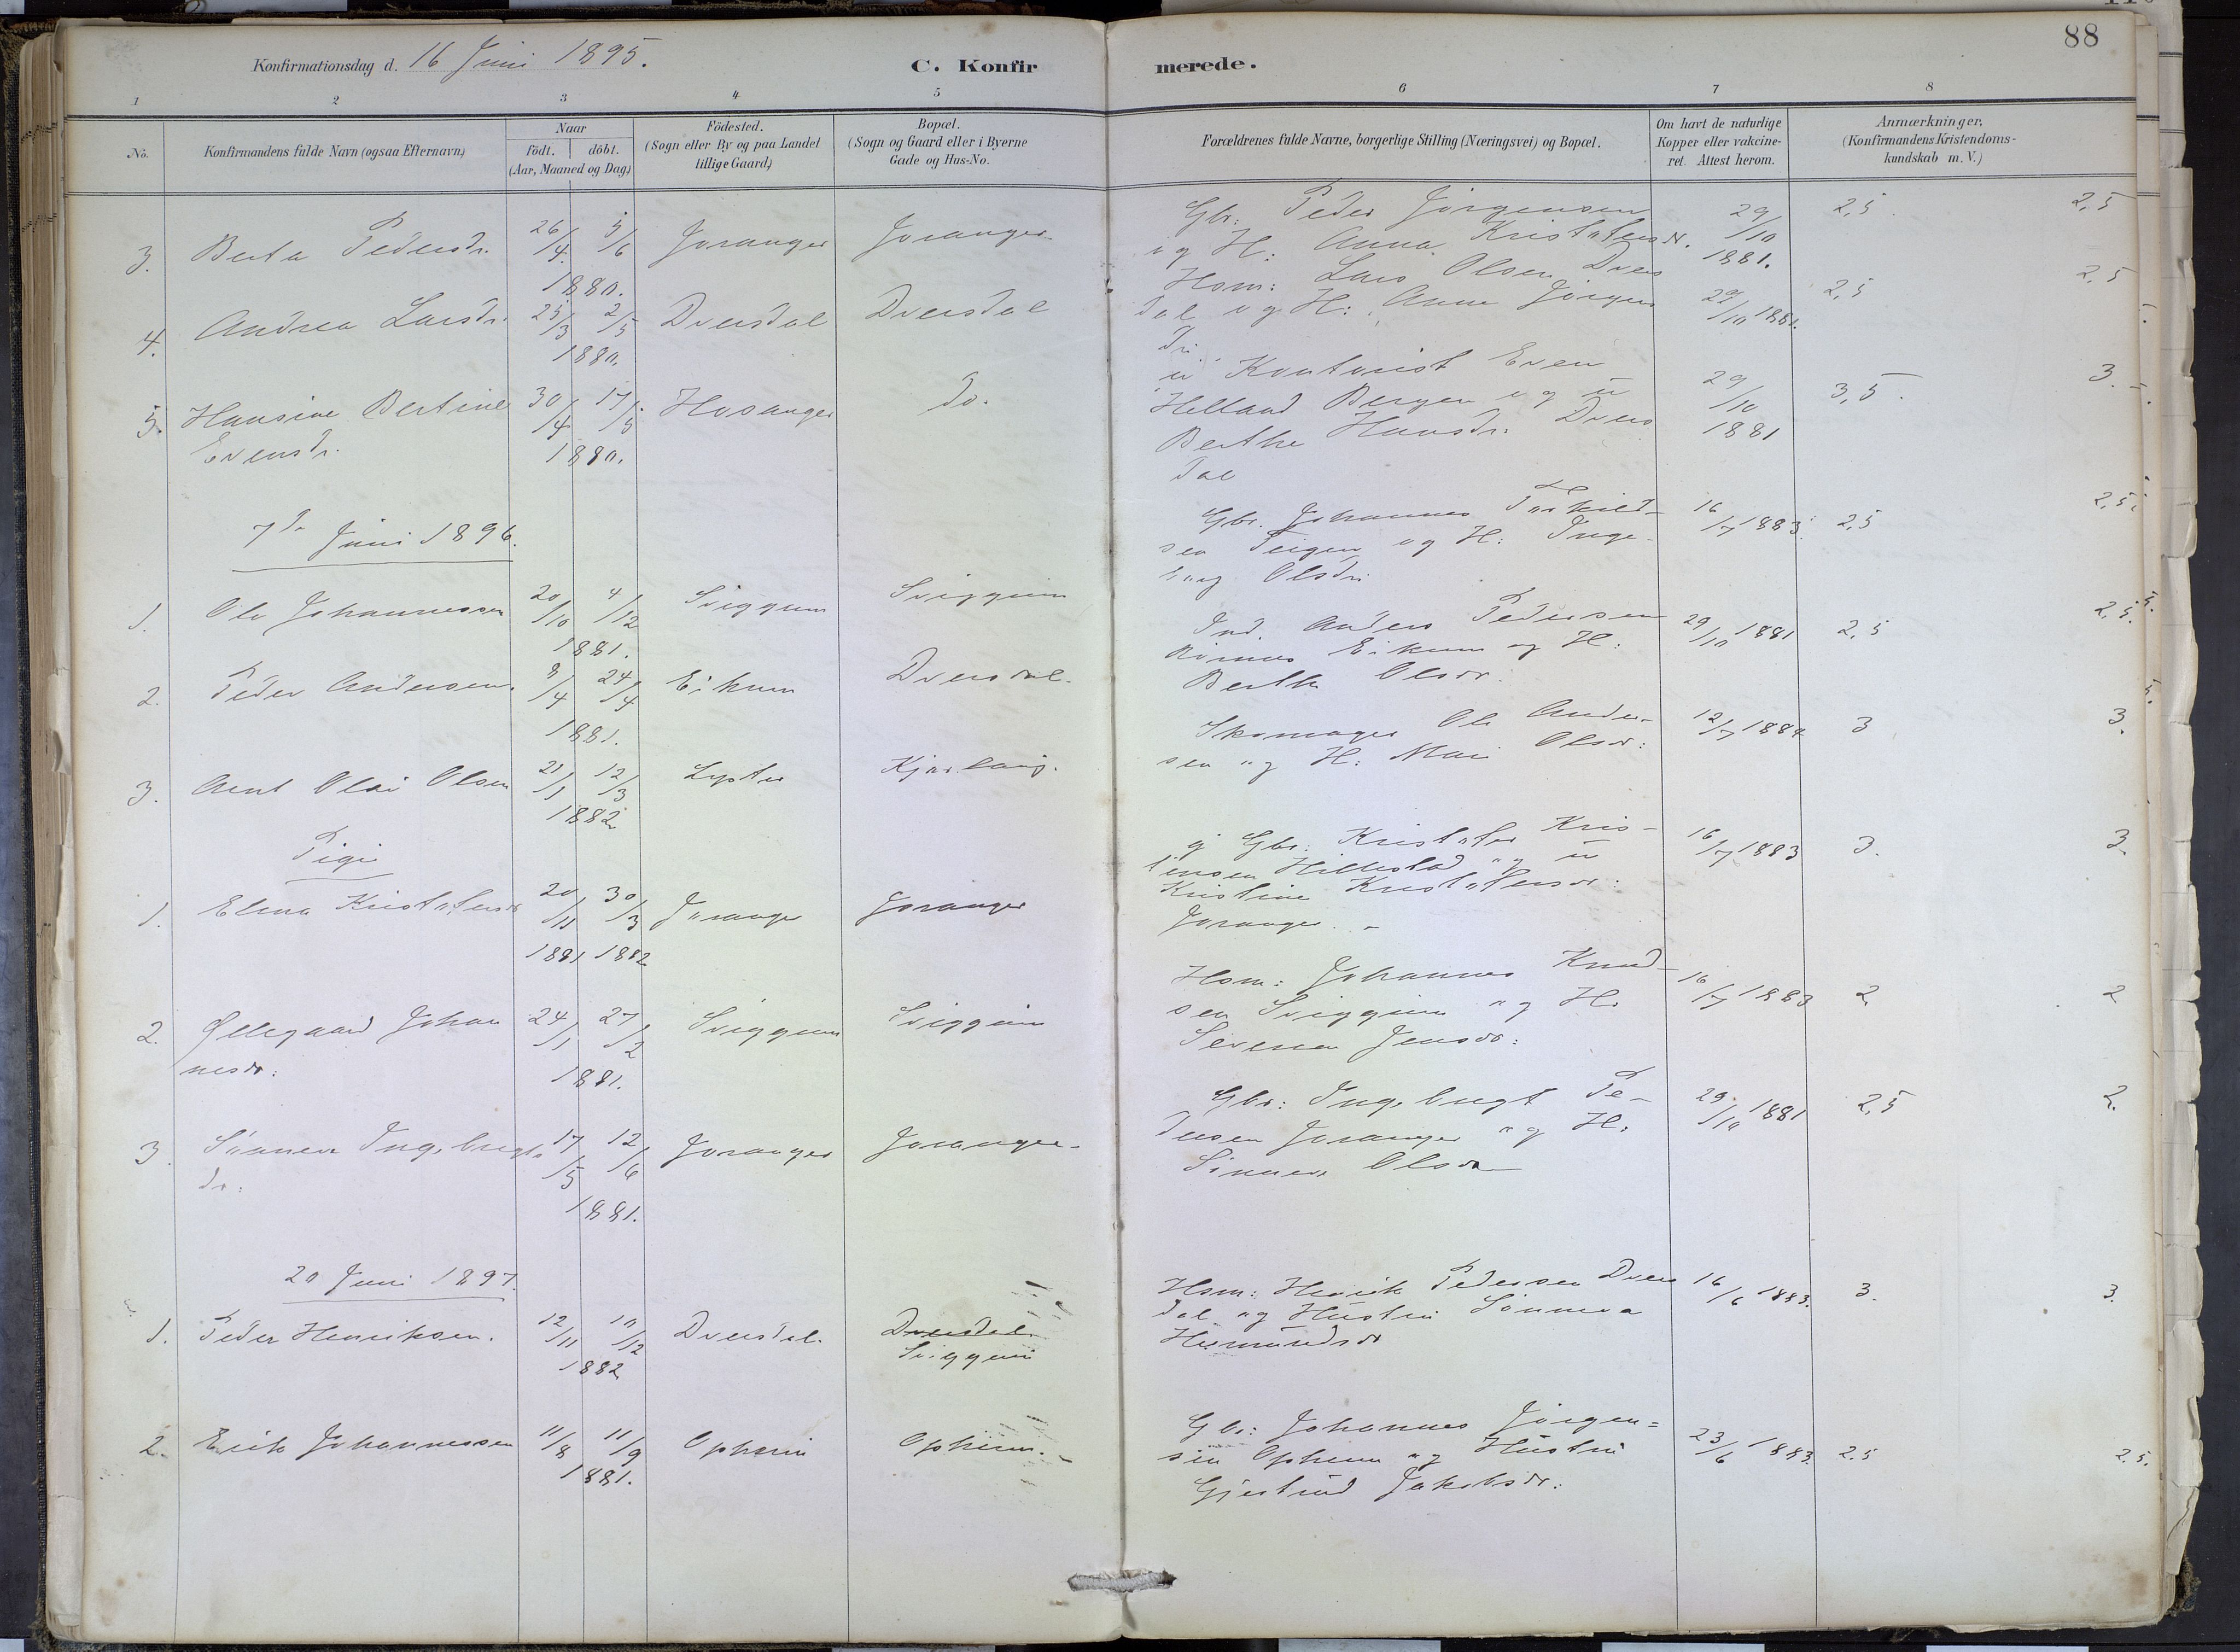 88
Konfirmationsdag d. 16 Juni 1895.
C. Konfirmerede.
1 2 3 4 5 6 7 8
No.
Konfirmandens fulde Navn (ogsaa Efternavn)
Naar
födt. döbt.
(Aar, Maaned og Dag)
Födested.
(Sogn eller By og paa Landet
tillige Gaard)
Bopæl.
(Sogn og Gaard eller i Byerne
Gade og Hus-No.
Forældrenes fulde Navne, borgerlige Stilling (Næringsvei) og Bopæl.
Om havt de naturlige
Kopper eller vakcine-
ret. Attest herom.
Anmærkninger.
(Konfirmandens Kristendoms-
kundskab m. V.)
3. Berta Pedersdr. 26/4 5/6 1880. Joranger Joranger
Gbr: Peder Jörgensen
og H: Anna Kristofersdr. 29/10 1881. 2,5 2,5
4. Andrea Larsdr. 25/3 2/5 1880. Dversdal Dversdal
Hsm: Lars Olsen Dvers
dal og H: Anne Jörgens
dr. 29/10 1881. 2,5 2,5
5. Hansine Bertine
Evensdr. 30/4 17/5 1880. Hosanger do.
u Kontorist Even
Helland Bergen og u
Berthe Hansdr. Dvers
dal 29/10 1881 3,5. 3.
7de Juni 1896.
1. Ole Johannessen 20/10 4/12 1881. Sviggum Sviggum
Gbr. Johannes Torkild-
sen Teigen og H: Inge-
borg Olsdr. 16/7 1883. 2,5 2,5
2. Peder Andersen. 8/4 24/4 1881. Eikum Dversdal.
Ind. Anders Pedersen
Eikum og H:
Berthe Olsdr. 29/10 1881 2,5 2,5.
3. Arnt Olai Olsen 21/1 12/3 1882. Lyster
Skomager Ole Ander-
sen og H: Mari Olsdr: 12/7 1884 3 3.
Pigi
1. Elena Kristofersdr 20/11 1881 30/3 1882 Joranger Joranger
g Gbr: Kristofer Kris-
tensen Hillestad og u
Kristine Kristofersdr:
Joranger. 16/7 1883 3. 3.
2. Øllegaard Johan
nesdr: 24/1 27/2 1881. Sviggum Sviggum
Hsm: Johannes Knud-
sen Sviggum og H.
Severina Jensdr: 16/7 1883 2 2
3. Sönneva Ingebrigts
dr: 17/5 12/6 1881. Joranger Joranger
Gbr: Ingebrigt Pe-
dersen Joranger og H.
Sönneva Olsdr 29/10 1881 2,5 2.
20 Juni 1897.
1. Peder Henriksen. 12/11 10/12 1882 Dversdal. Dversdal
Sviggum
Hsm: Henrik Pedersen Dvers
dal og Hustru Sönneva
Hermundsdr 16/6 1883. 3. 3.
2. Erik Johannessen 11/8 11/9 1881. Opheim Opheim.
Gbr: Johannes Jörgen=
sen Opheim og Hustru
Gjertrud Jakobsdr. 23/6 1883. 2.5 2.5.